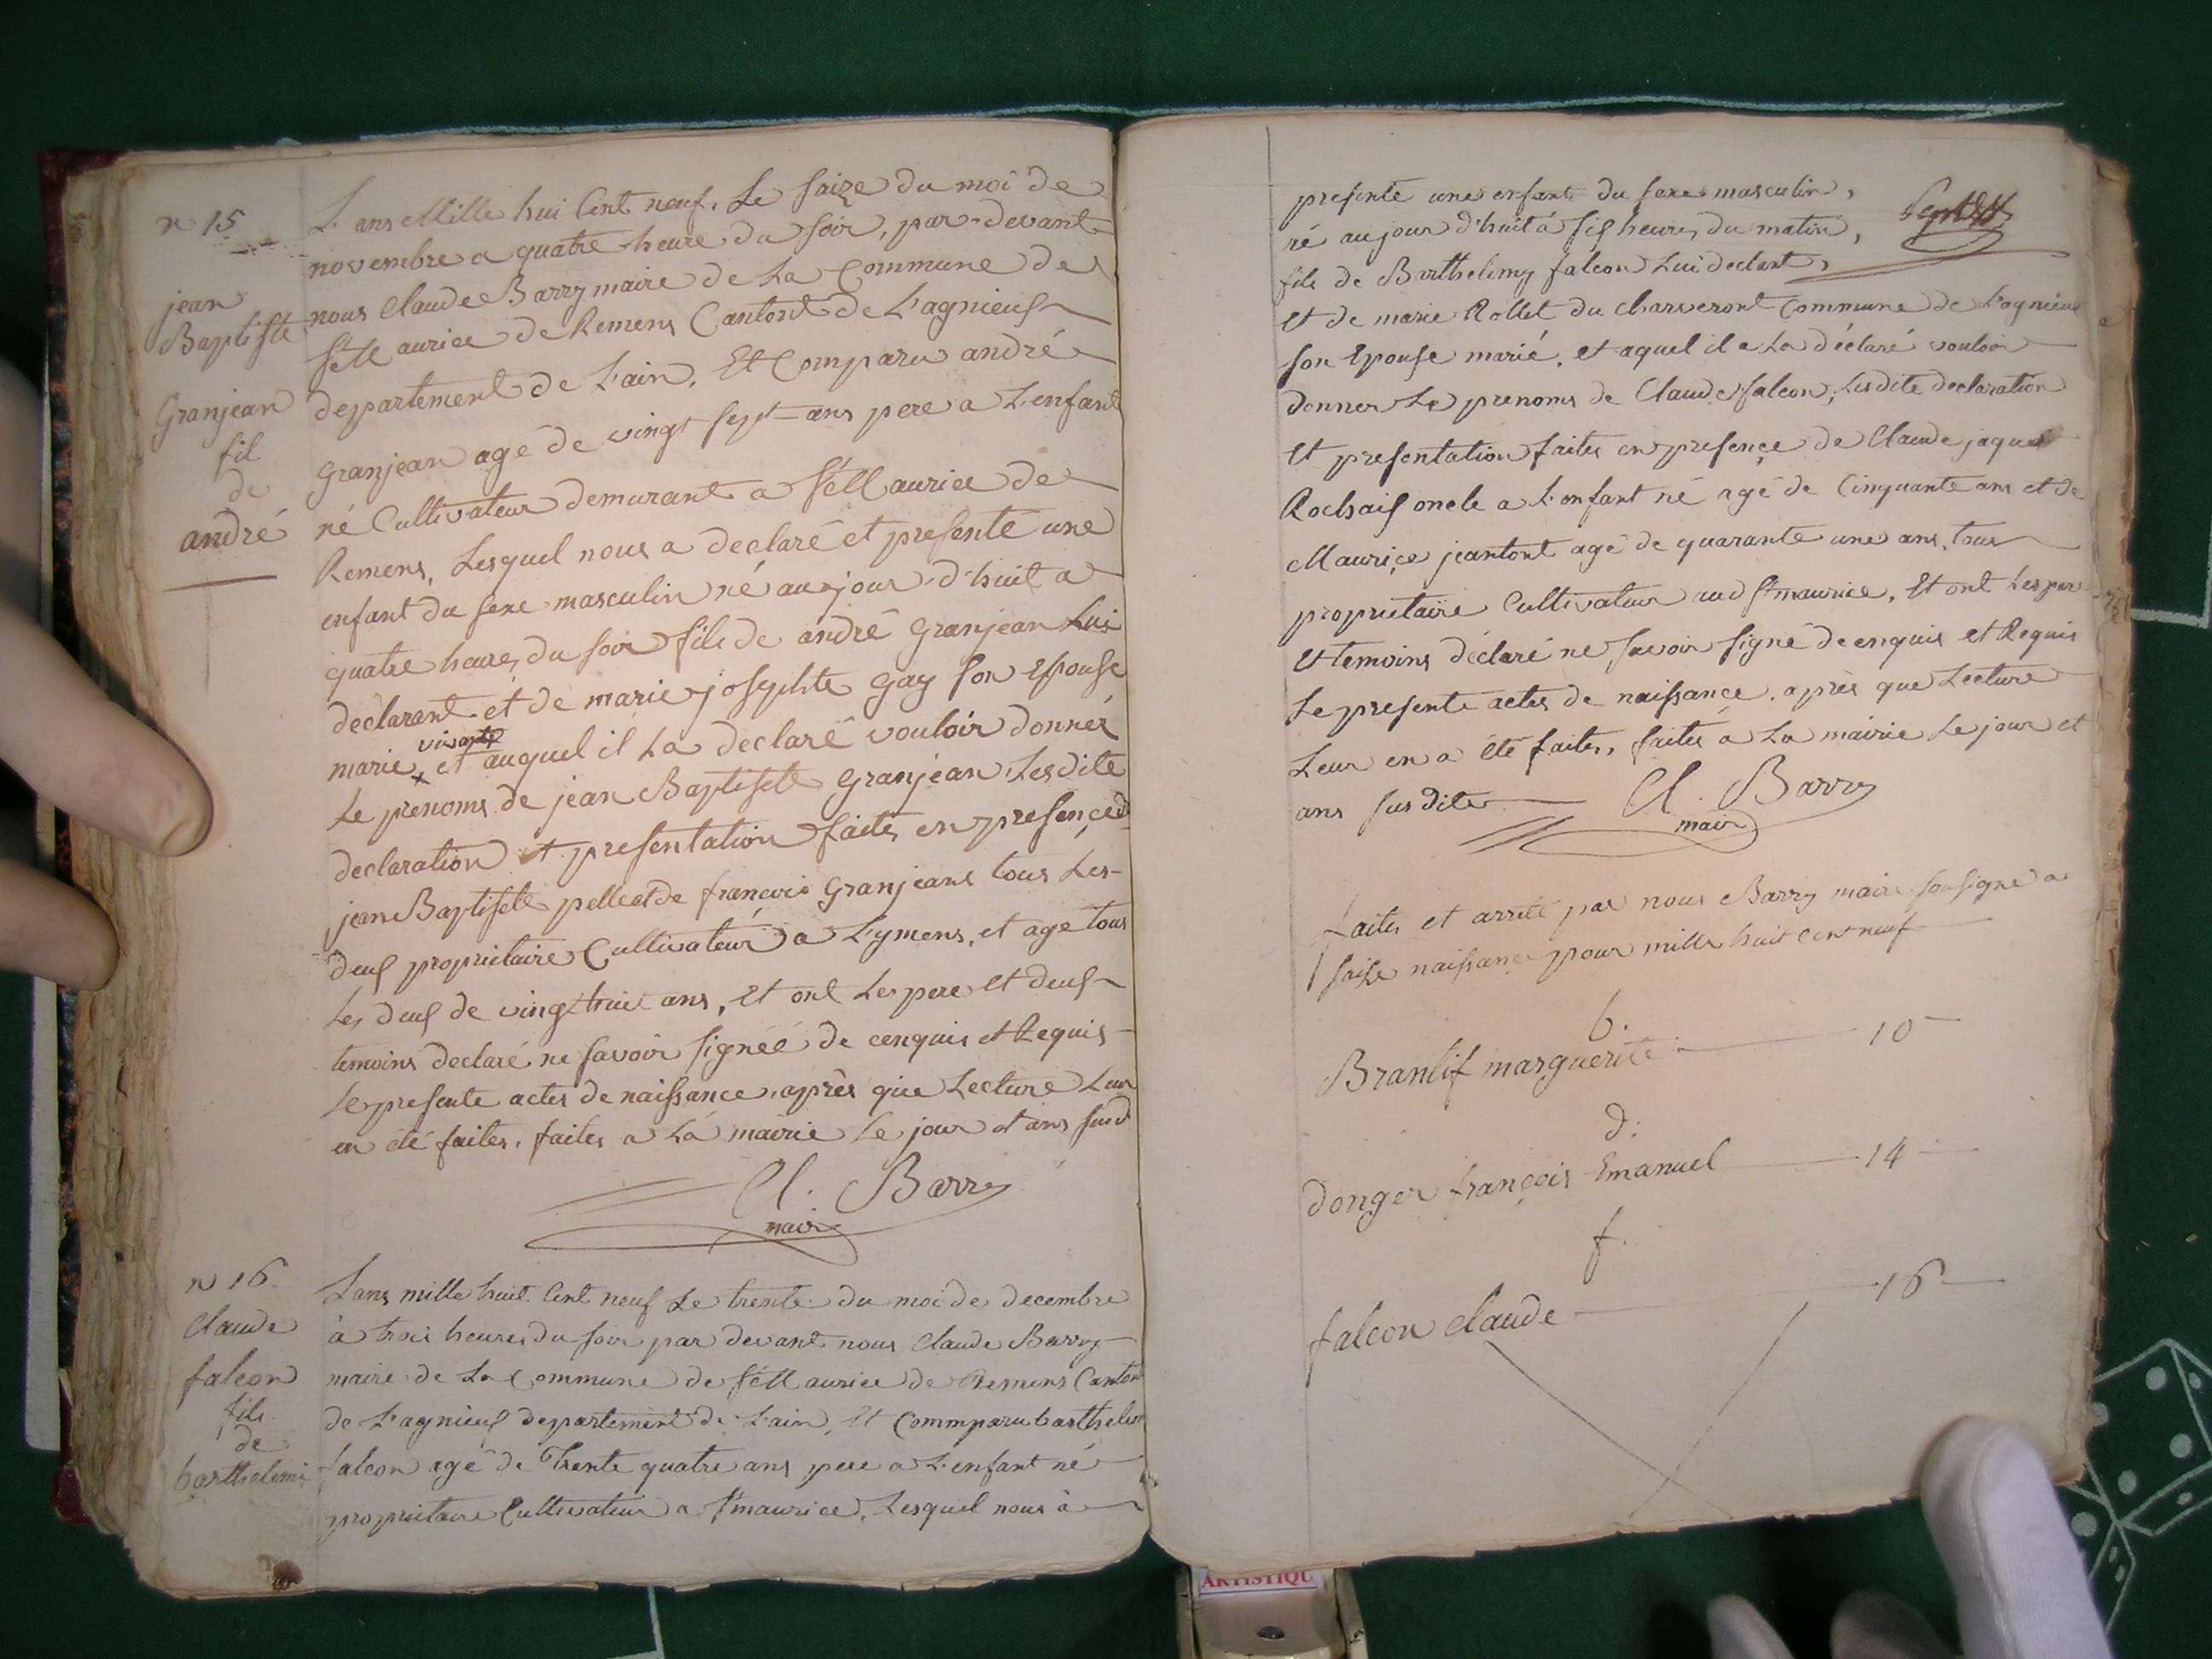 n 15
jean
Baptiste
Granjean
fil
de
andré
L'ans Mille hui Cent neuf, Le saize du moi de
novembre a quatre heure du soir, par-devant
nous Claude Barry maire de La Commune de
St Maurice de Remens Cantont de L'agnieuf
departement de L'ain, Et Comparu andré
Granjean agé de vingt sept ans pere a L'enfant
né Cultivateur demurant a St Maurice de
Remens, Lesquel nous a declaré et presenté une
enfant du sexe masculin né au jour d'huit a
quatre heures du soir fils de andré granjean Lui
declarant et de marie josephte gay son Epouse
vivante
marie, et auquel il La declaré vouloir donner
Le prenoms de jean Baptiste granjean Lesdite
declaration et presentation faites en presençed
jean Baptiste pelleetde françois Granjeant tous Les
deuf proprietaire Cultivateur a L'ymens, et agé tous
Les deuf de vingt huit ans, Et ont Le pere et deuf
temoins declaré ne savoir signéé de cenquis et Requis
Le presente actes de naissance, après que Lecture Leur
en été faites, faites a La mairie Le jour et ans susd
Cl. Barry
maire
n 16
Claude
falcon
fils
de
barthelemi
Lans mille huit Cent neuf Le trente du moi de decembre
à trois heures du soir par devant nous Claude Barry
maire de La Commune de St Maurice de Remens Canton
de L'agnieuf departement de L'ain, Et Commparu barthelem
falcon agé de Trente quatre ans pere a L'enfant né
proprietaire Cultivateur a St maurice, Lesquel nous à
presenté une enfant du sexe masculin,
né au jour d'huit á sif heures du matin,
fils de Barthelimy falcon Lui declart,
Et de marie Rollet du charveront Commune de L'agnieu
son Epouse marié, et aquel il a La déclaré vouloir
donner Le prenoms de Claude falcon, Lesdite declaration
Et presentation faites en presençe de Claude jaques
Rochaif oncle a L'enfant né agé de Cinquante ans et de
Mauriçe jeantont agé de quarante une ans, tous
proprietaire Cultivateur aud St maurice, Et ont Les per
Et temoins déclaré ne savoir signé de enquis et Requis
Le presente actes de naissance, après que Lecture
Leur en a été faites, faites à La mairie Le jour et
ans susdite
Cl. Barry
maire
faites et arrêté par nous Barry maire sousigné a
saise naissance pour mille huit cent neuf
b.
Branlif marguerite 10
d.
donger françois Emanuel 14
f.
falcon claude 16
ARTISTIQU